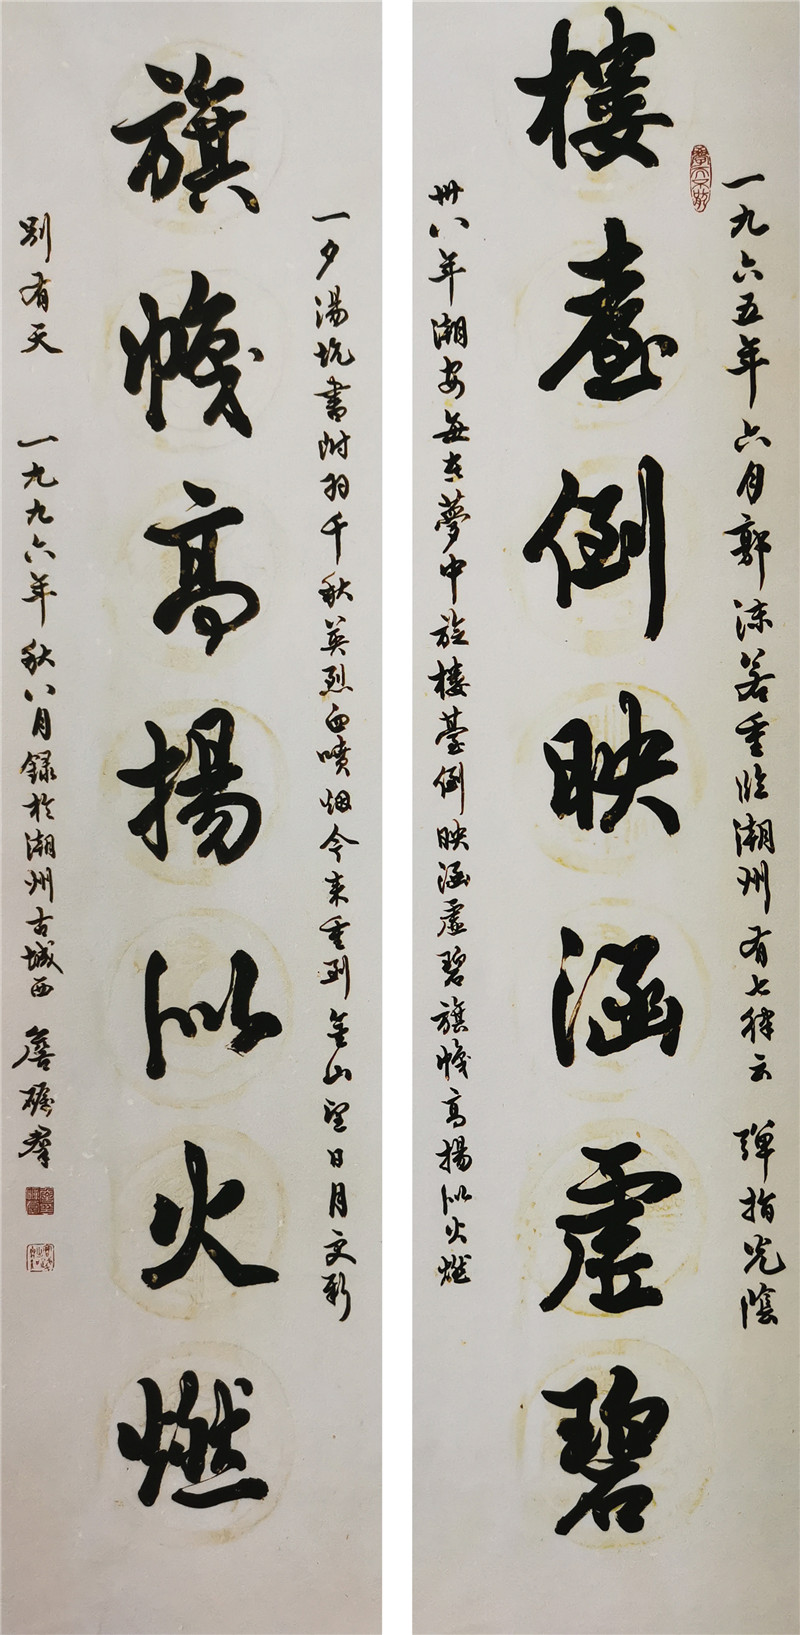 一九六五年六月郭沫若重臨潮州有七律云　弹指光陰
樓臺倒映涵虛碧
卅八年潮安每在夢中旋樓臺倒映涵虛碧旗幟高揚似火燃
一夕湯坑書附羽千秋英烈血噴烟今来重到金山望日月更新
旗幟高揚似火燃
别有天　一九九六年秋八月録於潮州古城西　詹礪羣